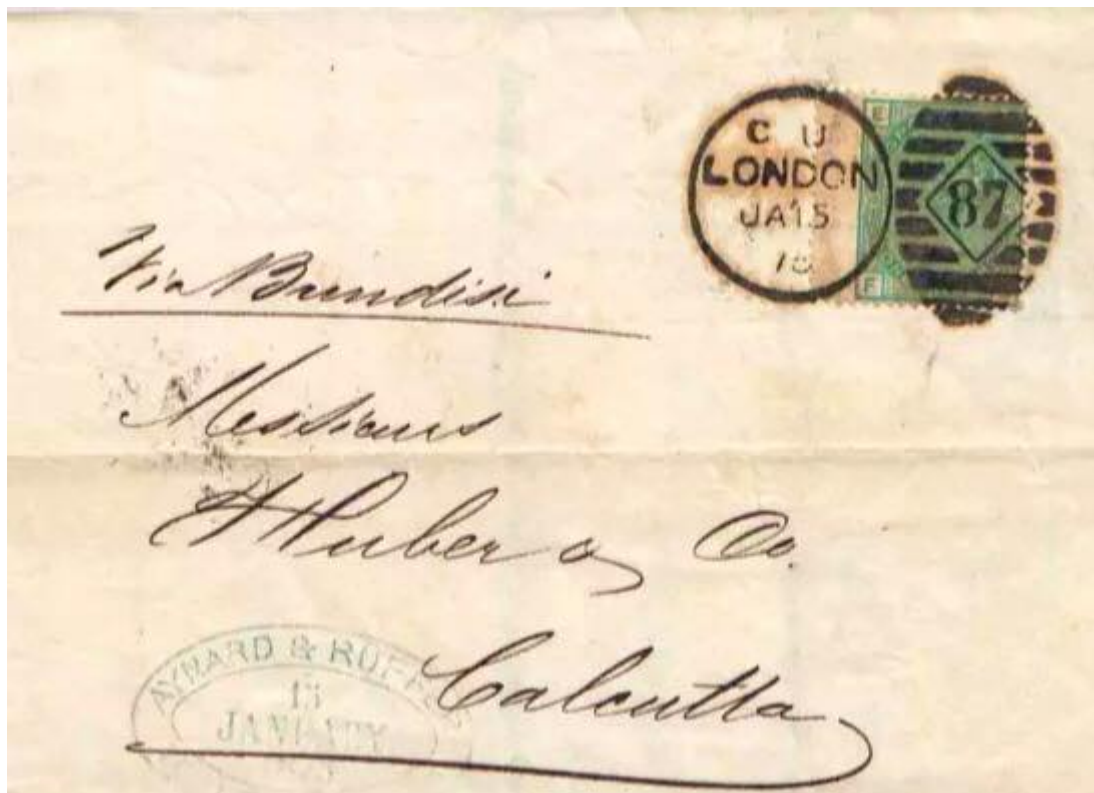 C U
LONDON
JA15
78
87
E
F
Via Brindisi
Messieurs
Huber & Co.
Calcutta
AYNARD & RUFF
15
JANUARY